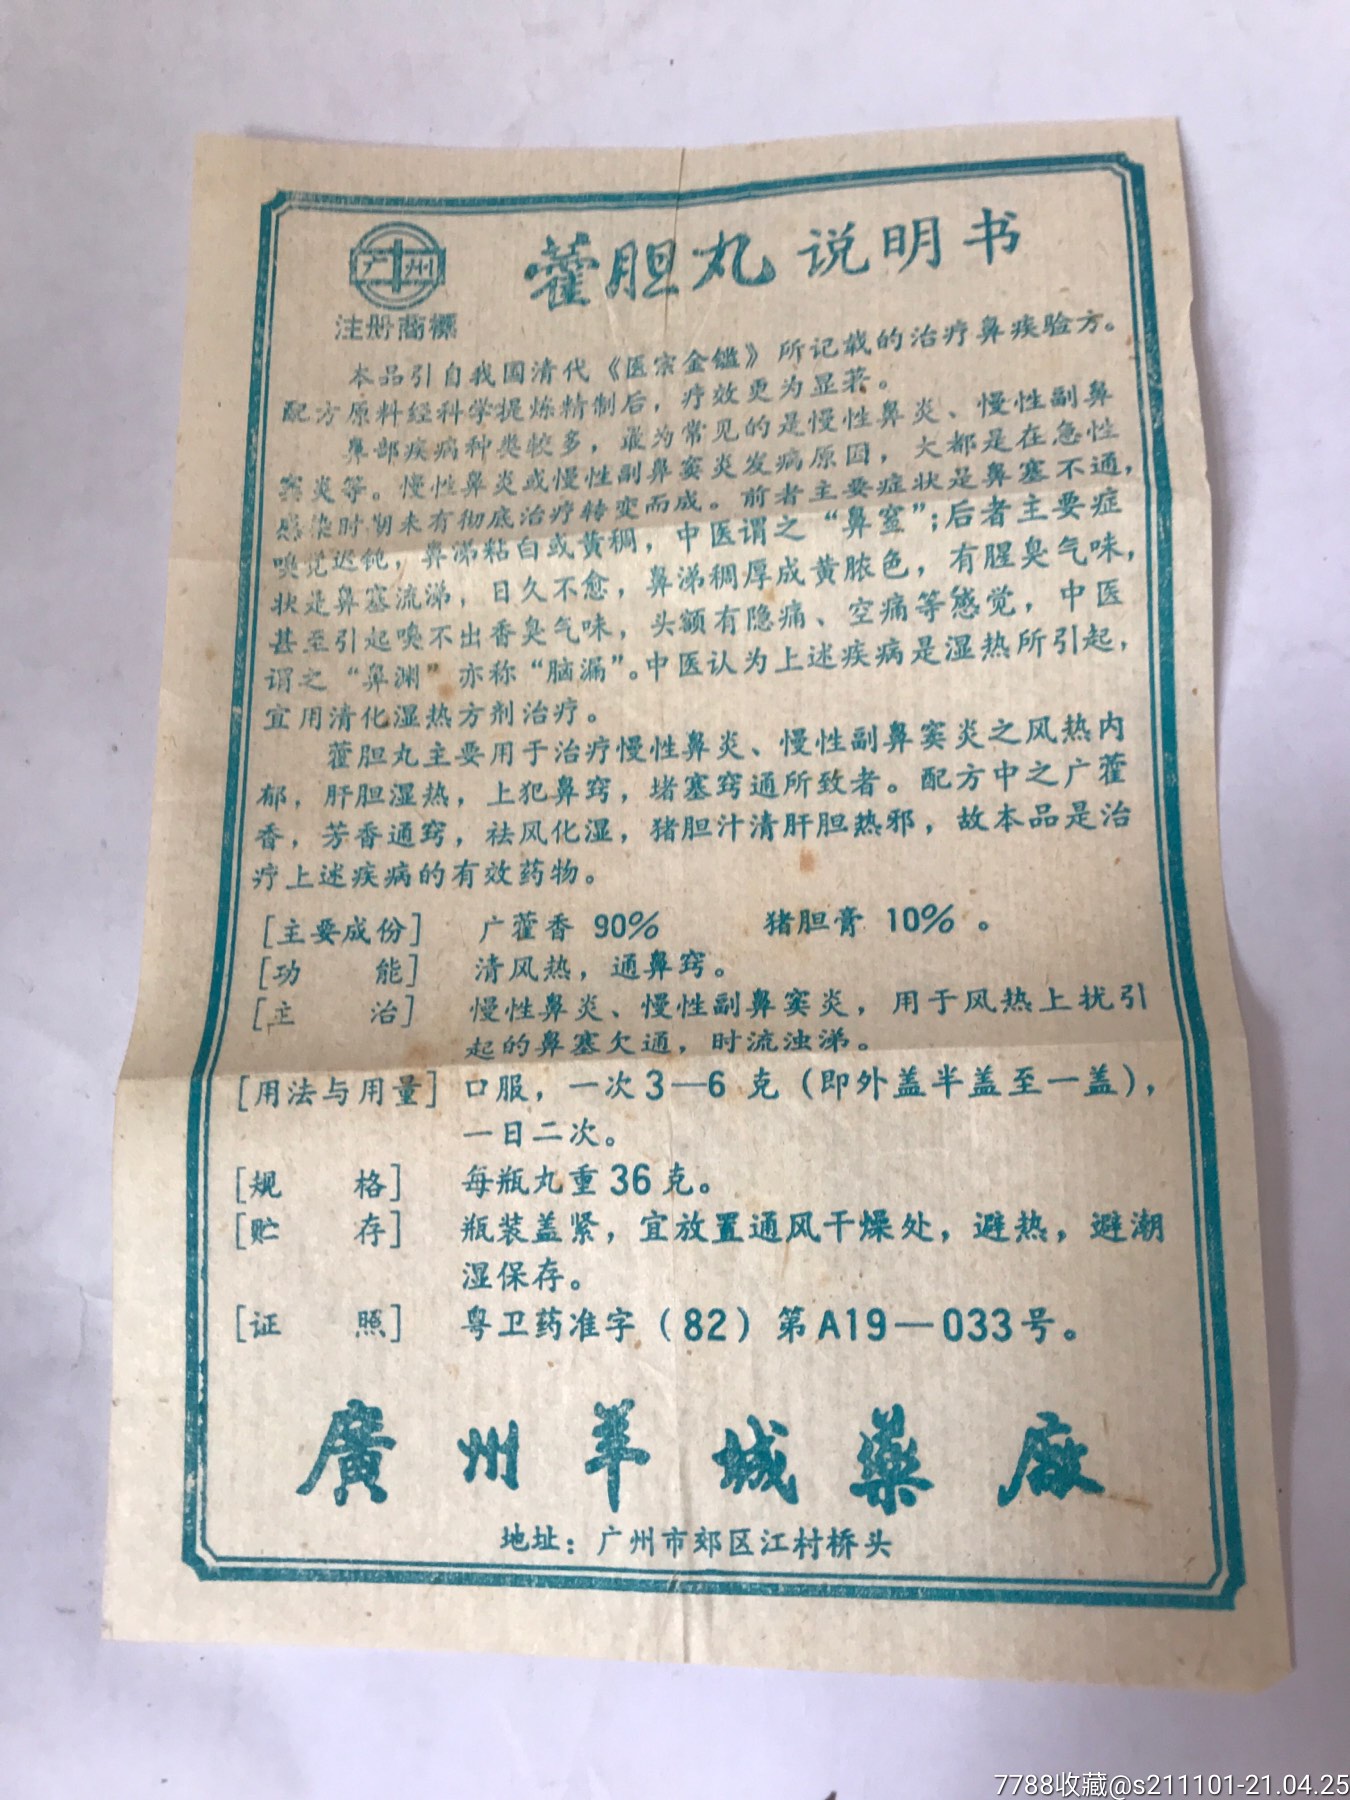 广州
注册商标
藿胆丸说明书
本品引自我国清代《医宗金鑑》所记载的治疗鼻疾验方。
配方原料经科学提炼精制后，疗效更为显著。
鼻部疾病种类较多，最为常见的是慢性鼻炎、慢性副鼻
窦炎等。慢性鼻炎或慢性副鼻窦炎发病原因，大都是在急性
感染时期未有彻底治疗转变而成。前者主要症状是鼻塞不通，
嗅觉迟钝，鼻涕粘白或黄稠，中医谓之“鼻窒”；后者主要症
状是鼻塞流涕，日久不愈，鼻涕稠厚成黄脓色，有腥臭气味，
甚至引起嗅不出香臭气味，头额有隐痛、空痛等感觉，中医
谓之“鼻渊”亦称“脑漏”。中医认为上述疾病是湿热所引起，
宜用清化湿热方剂治疗。
藿胆丸主要用于治疗慢性鼻炎、慢性副鼻窦炎之风热内
郁，肝胆湿热，上犯鼻窍，堵塞窍通所致者。配方中之广藿
香，芳香通窍，祛风化湿，猪胆汁清肝胆热邪，故本品是治
疗上述疾病的有效药物。
[主要成份] 广藿香 90% 猪胆膏 10%。
[功能] 清风热，通鼻窍。
[主治] 慢性鼻炎、慢性副鼻窦炎，用于风热上扰引
起的鼻塞欠通，时流浊涕。
[用法与用量] 口服，一次3—6克（即外盖半盖至一盖），
一日二次。
[规格] 每瓶丸重36克。
[贮存] 瓶装盖紧，宜放置通风干燥处，避热，避潮
湿保存。
[证照] 粤卫药准字（82）第A19—033号。
廣州羊城藥廠
地址：广州市郊区江村桥头
7788收藏@s211101-21.04.25